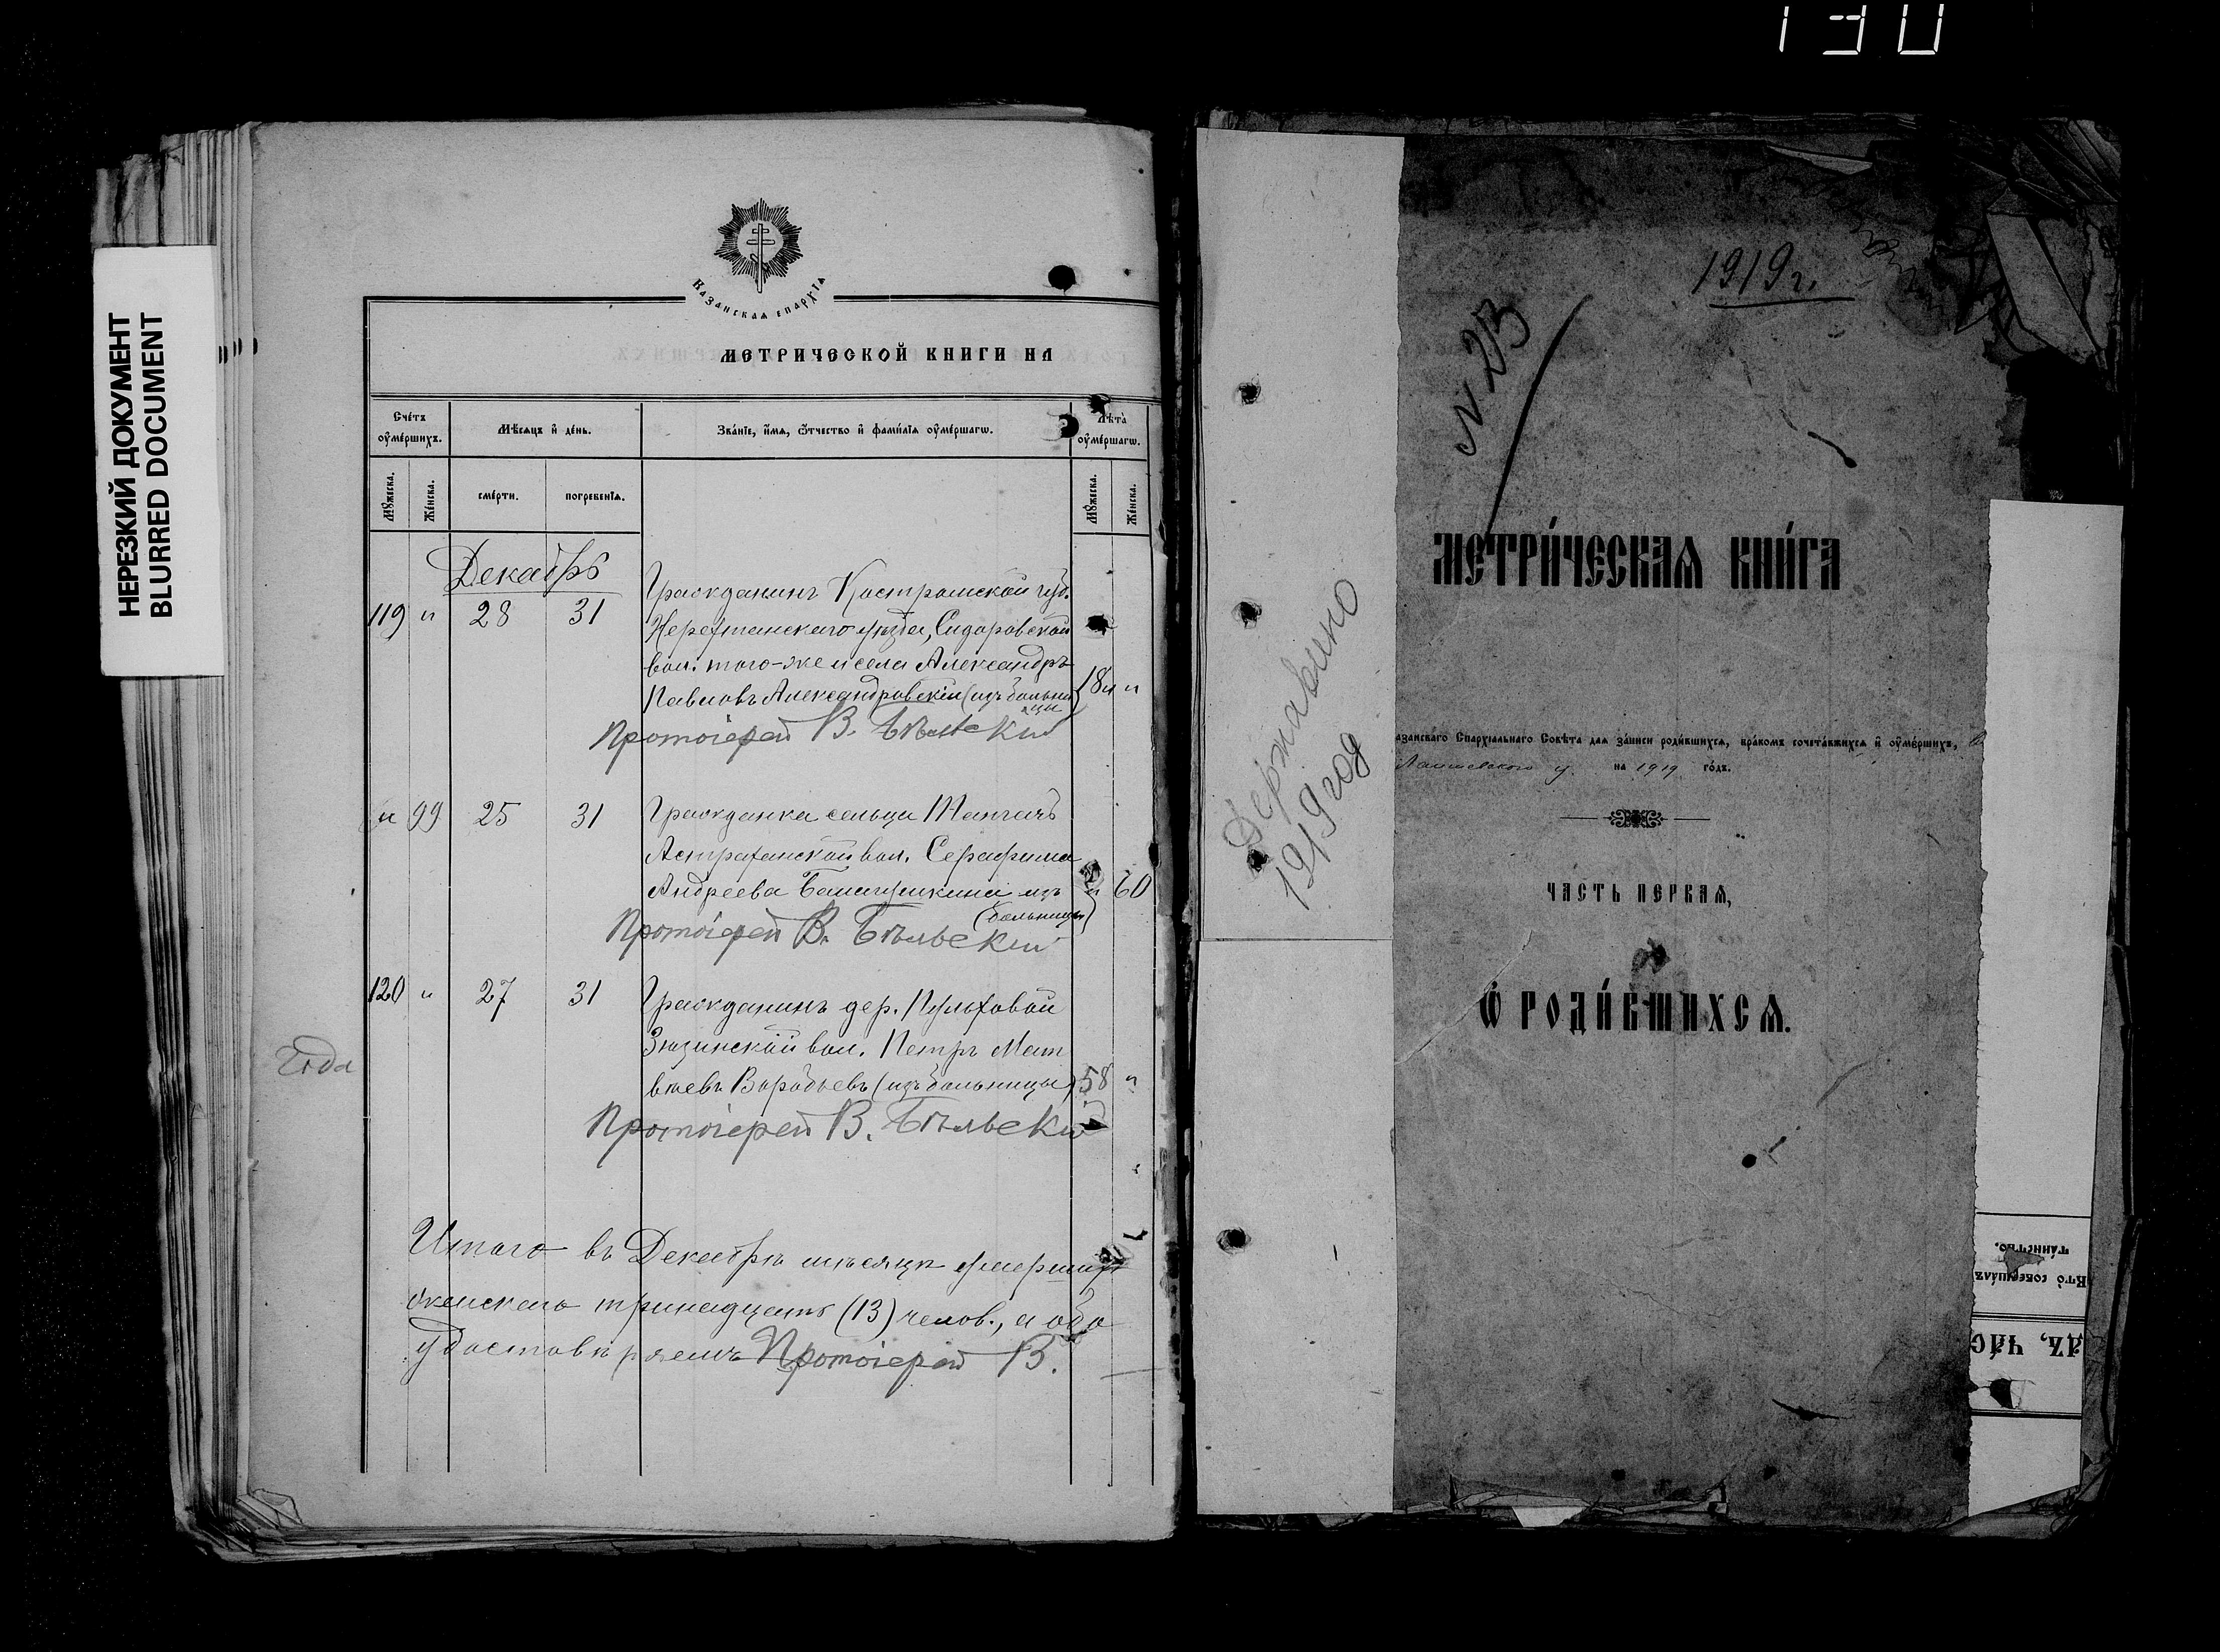 130
НЕРЕЗКИЙ ДОКУМЕНТ
BLURRED DOCUMENT
Казанская епархїѧ
МЕТРИЧЕСКОЙ КНИГИ НА
Счéтъ оу҆мéршихъ.
Мѣсѧцъ и҆ дéнь.
Звáнїе, и҆́мѧ, ѻ҆́тчество и҆ фамѝлїѧ оу҆мéршагѡ.
Лѣтà оу҆мéршагѡ.
Мꙋ́жеска.
Жéнска.
смéрти.
погребéнїѧ.
Мꙋ́жеска.
Жéнска.
Декабрь
119 " 28 31 Гражданинъ Костромской губ.
Нерехтинскаго уѣзда, Сидоровской
вол. того-же и села Александръ
Павловъ Александровскій (изъ больни
цы) 18 "
Протоіерей В. Бѣльскій
" 99 25 31 Гражданка сельца
Астраханской вол. Серафима
Андреева изъ " 60
(больницы)
Протоіерей В. Бѣльскій
120 " 27 31 Гражданинъ дер. Пульховой
Зюзинской вол. Петръ Мат
вѣевъ Воробьевъ (изъ больницы) 58 "
Протоіерей В. Бѣльскій
Итого въ Декабрѣ мѣсяцѣ умершихъ
женскаго тринадцать (13) челов., а обо
удостовѣряемъ Протоіерей В.
Державино
1919 год
1919 г.
N 23
МЕТРИ́ЧЕСКАѦ КНИ́ГА
азанскагѡ Епархїальнагѡ Совѣта длѧ зáписи роди́вшихсѧ, брáкомъ сочетáвжихсѧ и҆ оу҆мéршихъ,
Лаишевского у. на 1919 гóдъ.
ЧАСТЬ ПЕРВАѦ,
Ѽ РОДИ́ВШИХСѦ.
Ктò совершáлъ
тáинство.
ДЪ, ЧАС